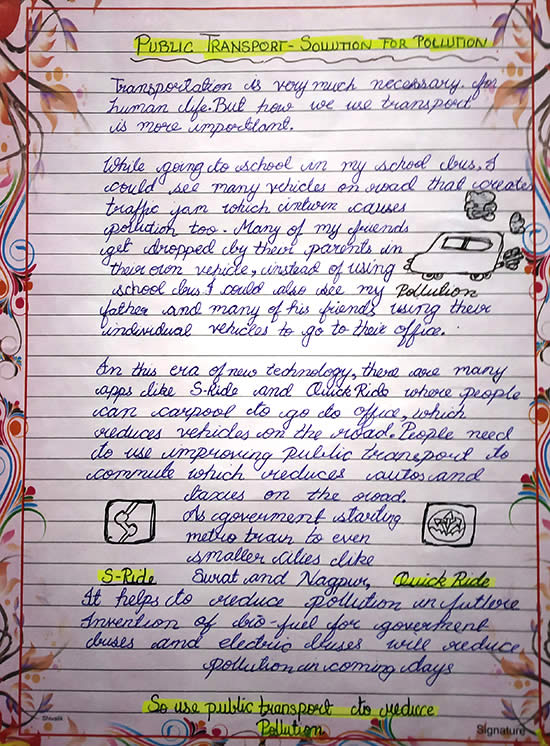 PUBLIC TRANSPORT-SOLUTION FOR POLLUTION
Transportation is very much necessary for
human life. But how we use transport
is more important.
While going to school in my school bus. I
could see many vehicles on road that creates
traffic jam which inturn causes
pollution too. Many of my friends
get dropped by their parents in
their own vehicle, instead of using
school bus I could also see my
Pollution
father and many of his friends using their
individual vehicles to go to their office.
In this era of new technology, there are many
apps like S-Ride and Quick Ride where people
can carpool to go to office, which
reduces vehicles on the road. People need
to use improving public transport to
commute which reduces autos and
taxies on the road.
As goverment starting
metro train to even
smaller cities like
S-Ride Surat and Nagpur, Quick Ride
It helps to reduce pollution in future
Invention of bio-fuel for goverment
buses and electric buses will reduce
pollution in coming days
So use public transport to reduce
Pollution
Shivalik
Signature